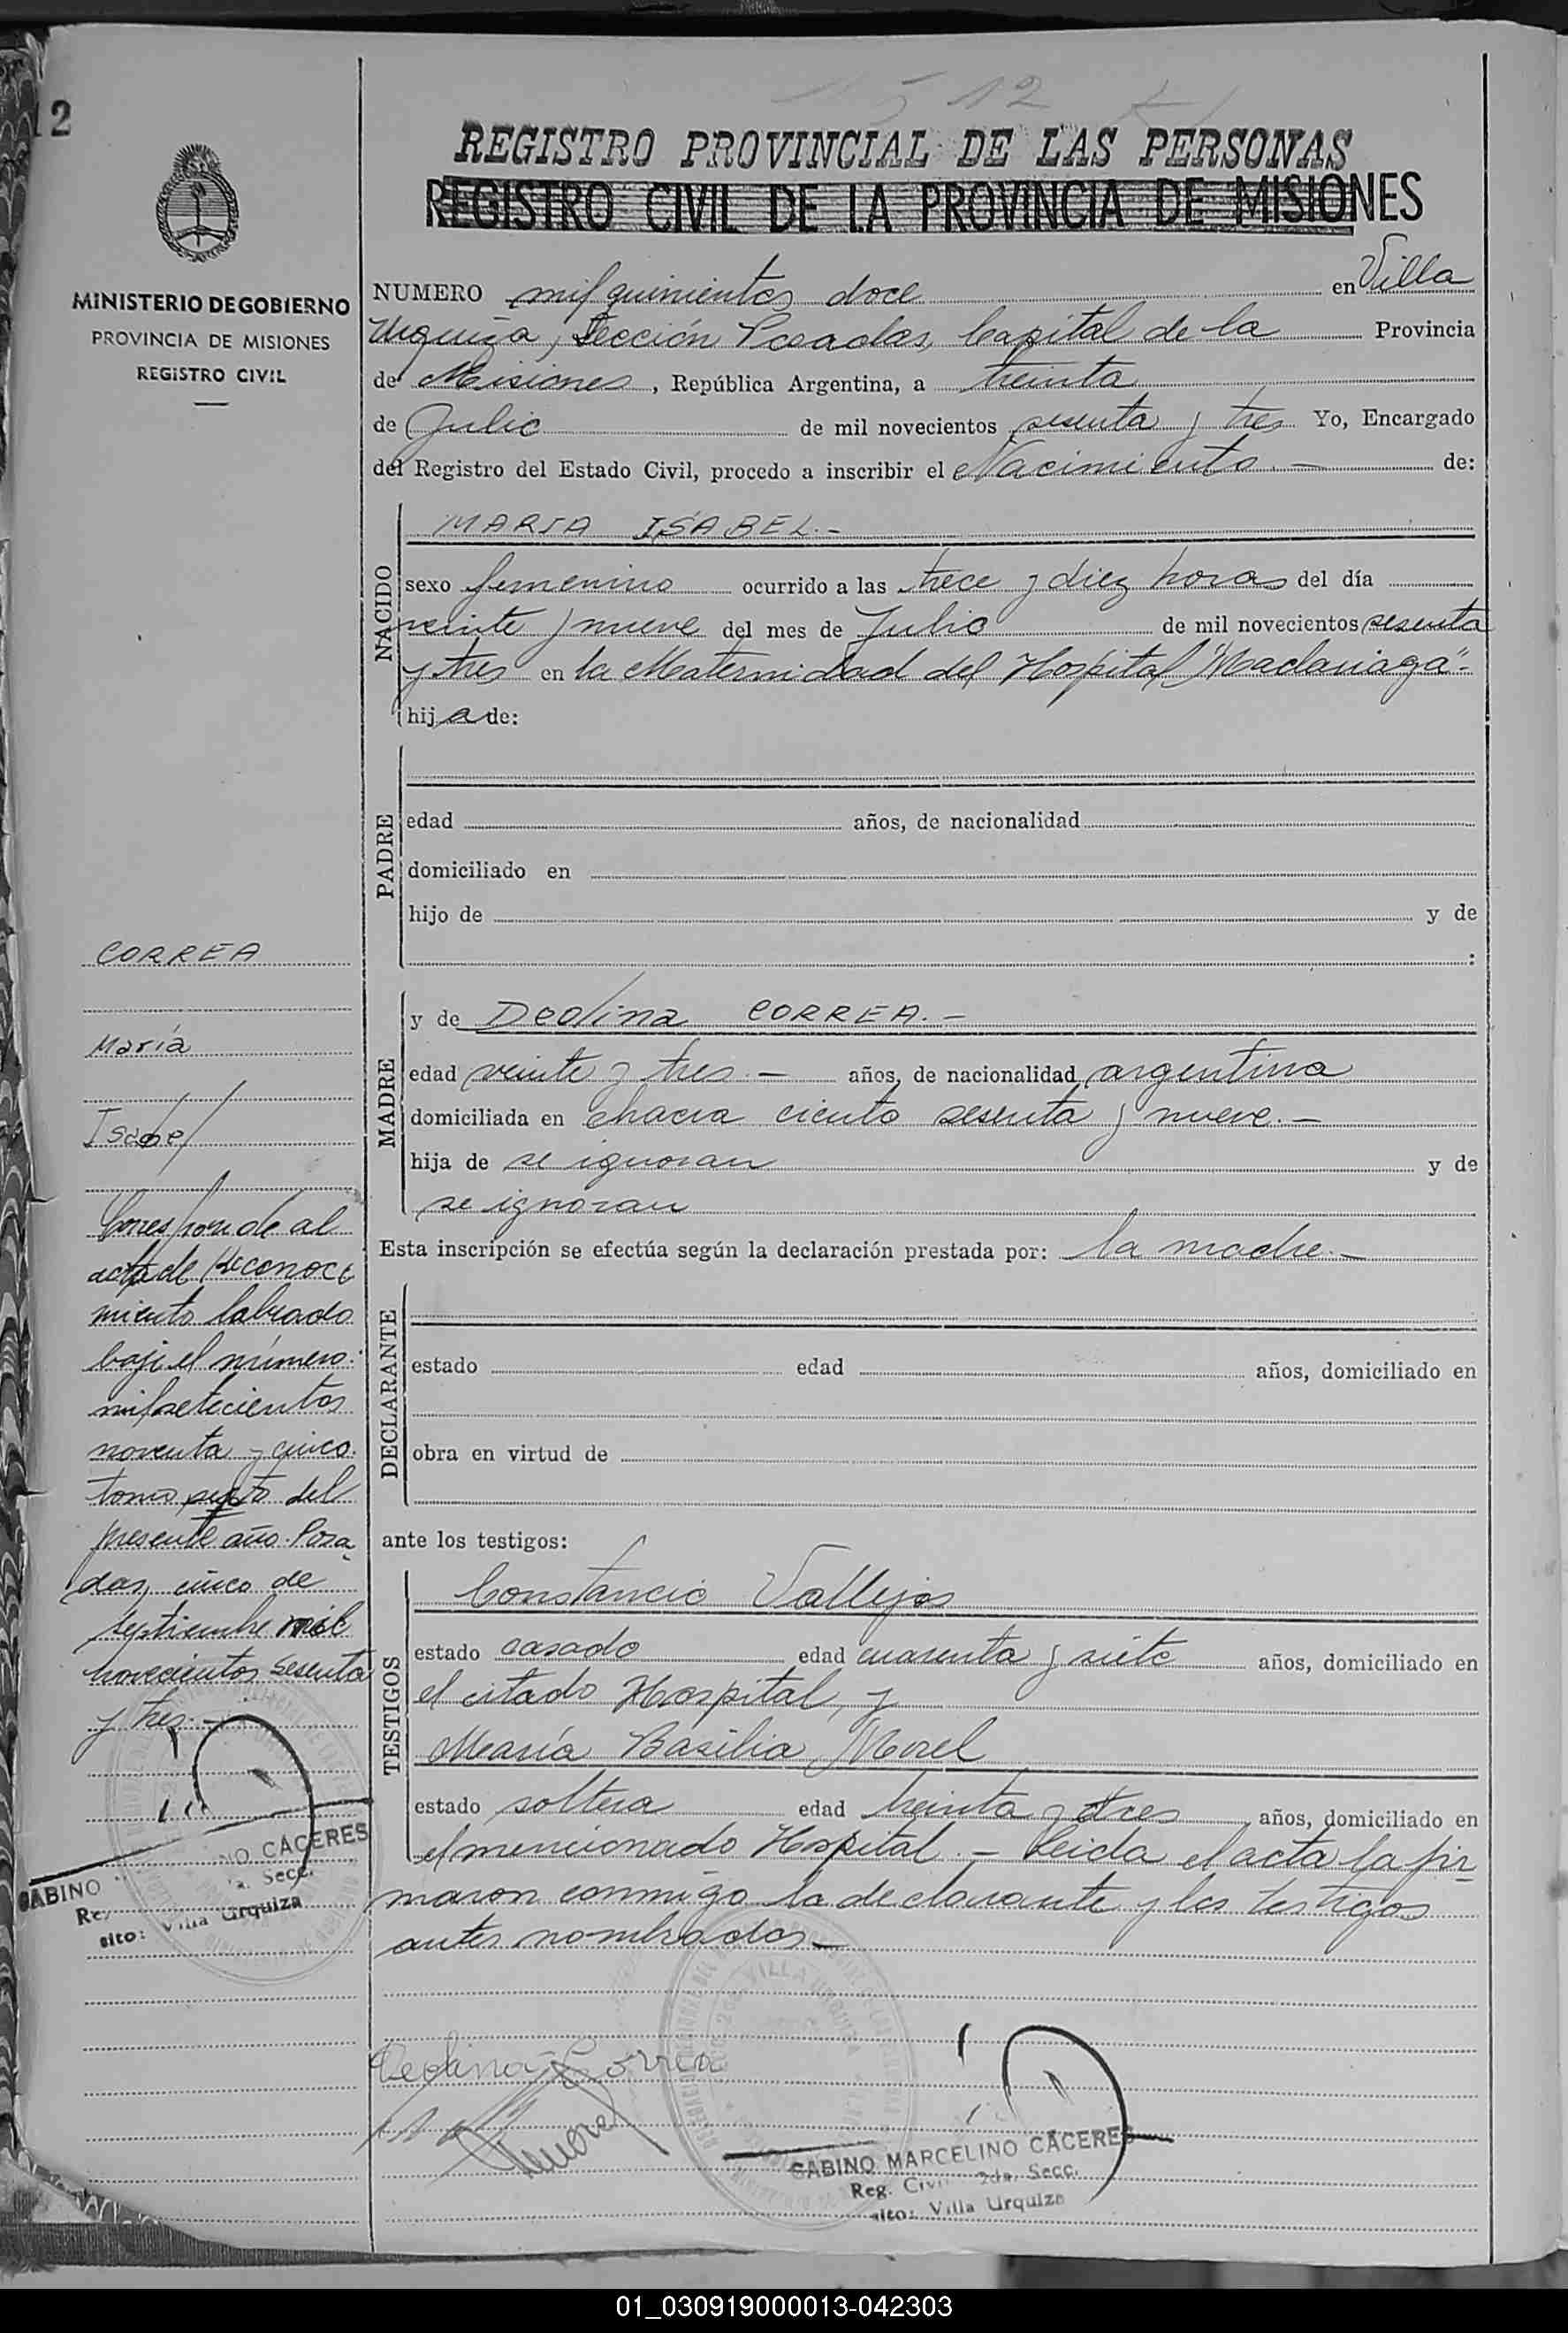 12
512
REGISTRO PROVINCIAL DE LAS PERSONAS
REGISTRO CIVIL DE LA PROVINCIA DE MISIONES
MINISTERIO DE GOBIERNO
PROVINCIA DE MISIONES
REGISTRO CIVIL
NUMERO mil quinientos doce en Villa
Urquiza, Sección Posadas, Capital de la Provincia
de Misiones, República Argentina, a treinta
de Julio de mil novecientos sesenta y tres Yo, Encargado
del Registro del Estado Civil, procedo a inscribir el Nacimiento. — de:
NACIDO
MARIA ISABEL.-
sexo femenino ocurrido a las trece y diez horas del día
veinte y nueve del mes de Julio de mil novecientos sesenta
y tres en la Maternidad del Hospital "Madariaga".-
hija de:
PADRE
edad años, de nacionalidad
domiciliado en
hijo de y de
:
MADRE
y de Deolina CORREA.-
edad veinte y tres.- años, de nacionalidad argentina
domiciliada en chacra ciento sesenta y nueve.-
hija de se ignoran y de
se ignoran
Esta inscripción se efectúa según la declaración prestada por: la madre.-
DECLARANTE
estado edad años, domiciliado en
obra en virtud de
ante los testigos:
TESTIGOS
Constancio Vallejos
estado casado edad cuarenta y siete años, domiciliado en
el citado Hospital, y
María Basilia Morel
estado soltera edad treinta y tres años, domiciliado en
el mencionado Hospital.- Leida el acta la fir
maron conmigo la declarante y los testigos
antes nombrados.-
Deolina Correa
Morel
SABINO MARCELINO CACERES
Reg. Civil 2da. Secc.
sito: Villa Urquiza
CORREA
María
Isabel
Corresponde al
acta de Reconoci
miento labrado
bajo el número
mil setecientos
noventa y cinco
tomo sexto del
presente año. Posa
das, cinco de
septiembre mil
novecientos sesenta
y tres.-
SABINO
NO CACERES
a. Secc.
sito: Villa Urquiza
01_030919000013-042303